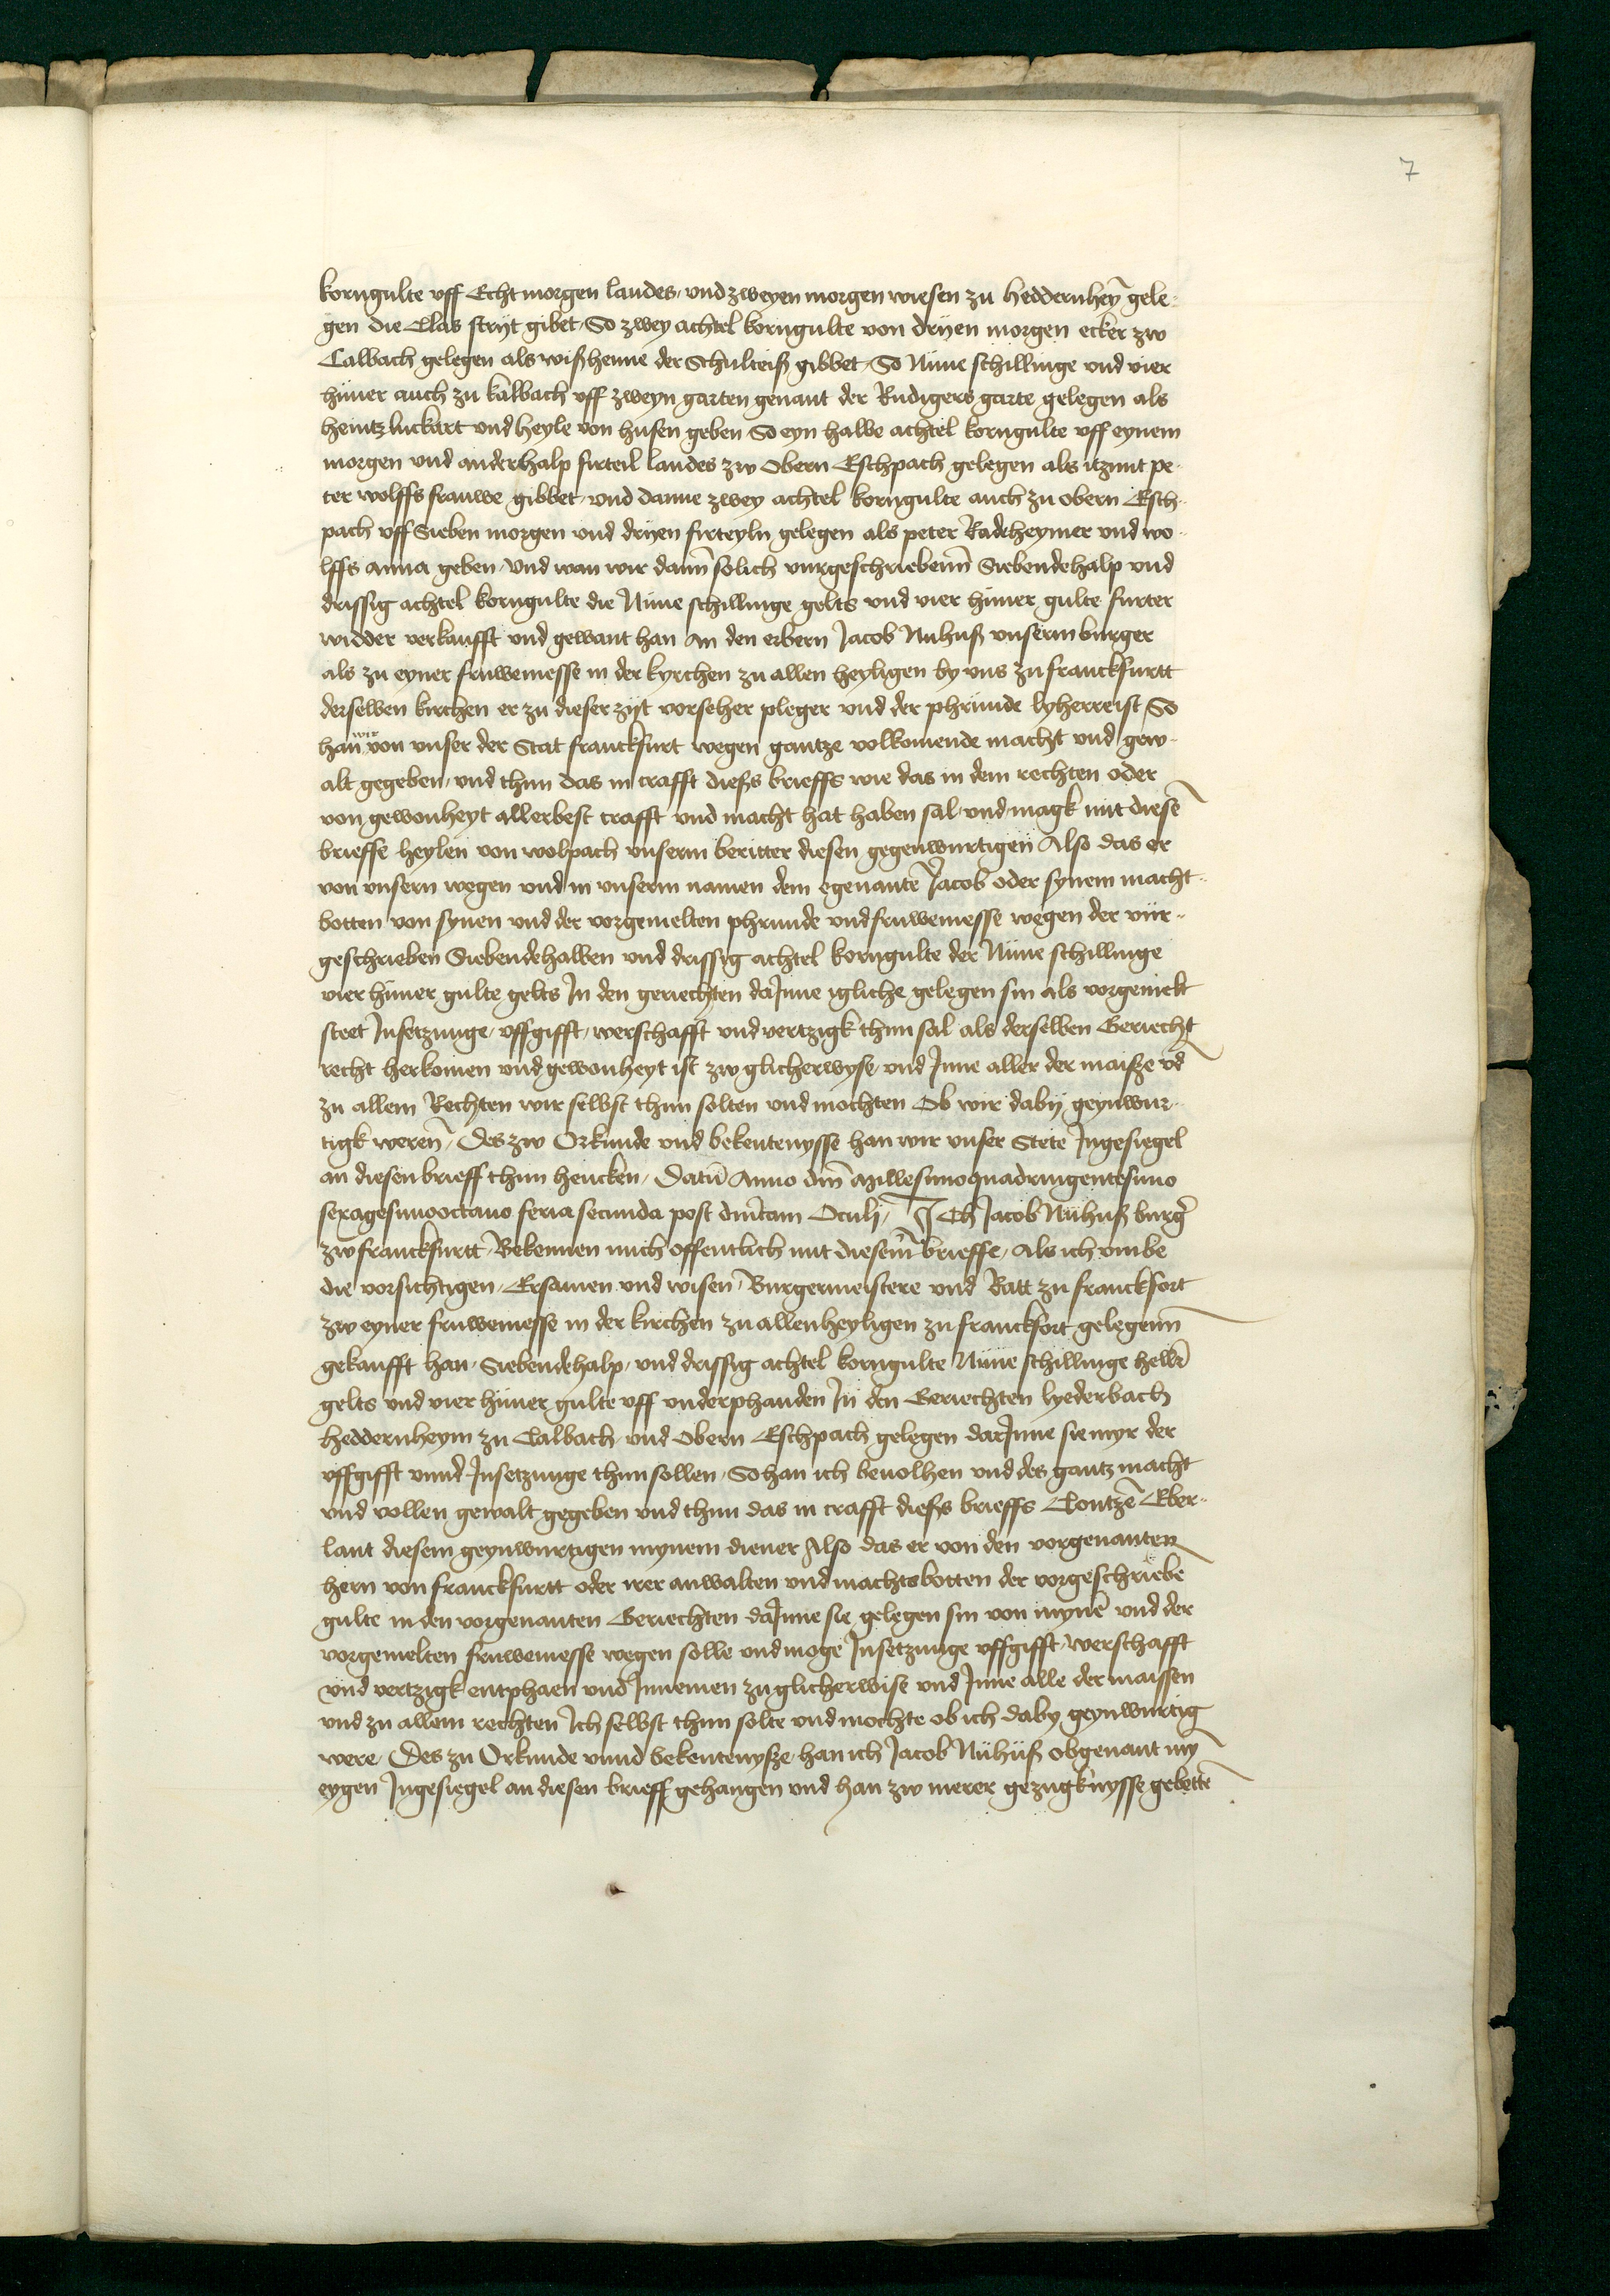 7
korngulte vff Echt morgen landes, vnd zweyen morgen wiesen zu heddernheȳ gele-
gen die Clas strijt gibet, So zwey achtel korngulte von dryen morgen ecker zw
Calbach gelegen als wißhenne der Schulteiß gibbet, So Nune schillinge vnd vier
huner auch zu kalbach vff zweyn garten genant der Rudigers garte gelegen als
heintz luckart vnd heyle von husen geben So eyn halbe achtel korngulte vff eynem
morgen vnd anderhalp firteil landes zw Obern Eschpach gelegen als itzunt pe-
ter wolffs frauwe gibbet, vnd danne zwey achtel korngulte auch zu obern Esch-
pach vff Sieben morgen vnd dryen firteyln gelegen als peter Radeheymer vnd wo-
lffs anna geben, Vnd wan wir dann̄ solich vurgeschriebenn̄ Siebendehalp vnd
drissig achtel korngulte die Nune schillinge gelts vnd vier huner gulte furter
widder verkaufft vnd gewant han An den erbern Jacob Nuhuß vnserm burger
als zu eyner fruwemesse in der kyrchen zu allen heyligen by vns zu franckfurtt
derselben kirchen er zu dieser zijt vorseher pleger vnd der phrunde lyherre ist So
han wir von vnser der Stat franckfurt wegen gantze volkomende macht vnd gew-
alt gegeben, vnd thun das in crafft dieß brieffs wie das in dem rechten oder
von gewonheyt allerbest crafft vnd macht hat haben sal, vnd magk mit diesē
brieffe heylen von wolpach vnserm beritter diesen gegenwurtigen Also das er
von vnsern wegen vnd in vnserm namen dem egenantē Jacob oder synem macht-
botten von synen vnd der vorgemelten phrunde vnd fruwemesse wegen der vur-
geschrieben Siebendehalben vnd drissig achtel korngulte der Nune schillinge
vier huner gulte gelts In den geriechten daJnne igliche gelegen sin als vorgemelt
steet Jnsetzunge, vffgifft, werschafft vnd vertzigk thun sal als derselben Geriecht
recht herkomen vnd gewonheyt ist zw glicherwyse, vnd Jnne aller der maisze vd
zu allem Rechten wir selbst thun solten vnd mochten Ob wir daby geynwur-
tigk weren̄, Des zw Orkunde vnd bekentenysse han wir vnser Stete Jngesiegel
an diesen brieff thun hencken, Datū Anno dn̄i Millesimoquadringentesimo
sexagesimooctauo feria secunda post dn̄icam Oculi, ICh Jacob Nuhuß burg̉
zw franckfurtt, Bekennen mich offentlich mit diesem̄ brieffe, Als ich vmbe
die vorsichtigen, Ersamen vnd wisen, Burgermeistere vnd Ratt zu franckfort
zw eyner fruwemesse in der kirchen zu allenheyligen zu franckfort gelegenn̄
gekaufft han, Siebendehalp, vnd drissig achtel korngulte Nune schillinge hellꝛ̄
gelts vnd vier huner gulte vff vnderphanden In den Geriechten lyederbach
heddernheym zu Calbach vnd Obern Eschpach gelegen darJnne sie myr der
vffgifft vnnd Jnsetzunge thun sollen, So han ich beuolhen vnd des gantz macht
vnd vollen gewalt gegeben vnd thun das in crafft dieß brieffs Contzē Eber-
lant diesem geynwurtigen mynem diener Also das er von den vorgenanten
hern von franckfurtt oder irer anwalten vnd machtsbotten der vorgeschriebē
gulte in den vorgenanten Geriechten daJnne sie gelegen sin von mynē vnd der
vorgemelten fruwemesse wegen solle vnd moge Jnsetzunge vffgifft, werschafft
vnd vertzigk entphaen vnd Jnnemen zu glicherwise vnd Jnne alle der maissen
vnd zu allem rechten Ich selbst thun solte vnd mochte ob ich daby geynwurtig
were, Des zu Orkunde vnnd bekentenysze, han ich Jacob Nuhuß obgenant mȳ
eygen Jngesiegel an diesen brieff gehangen vnd han zw merer gezugknysse gebettē